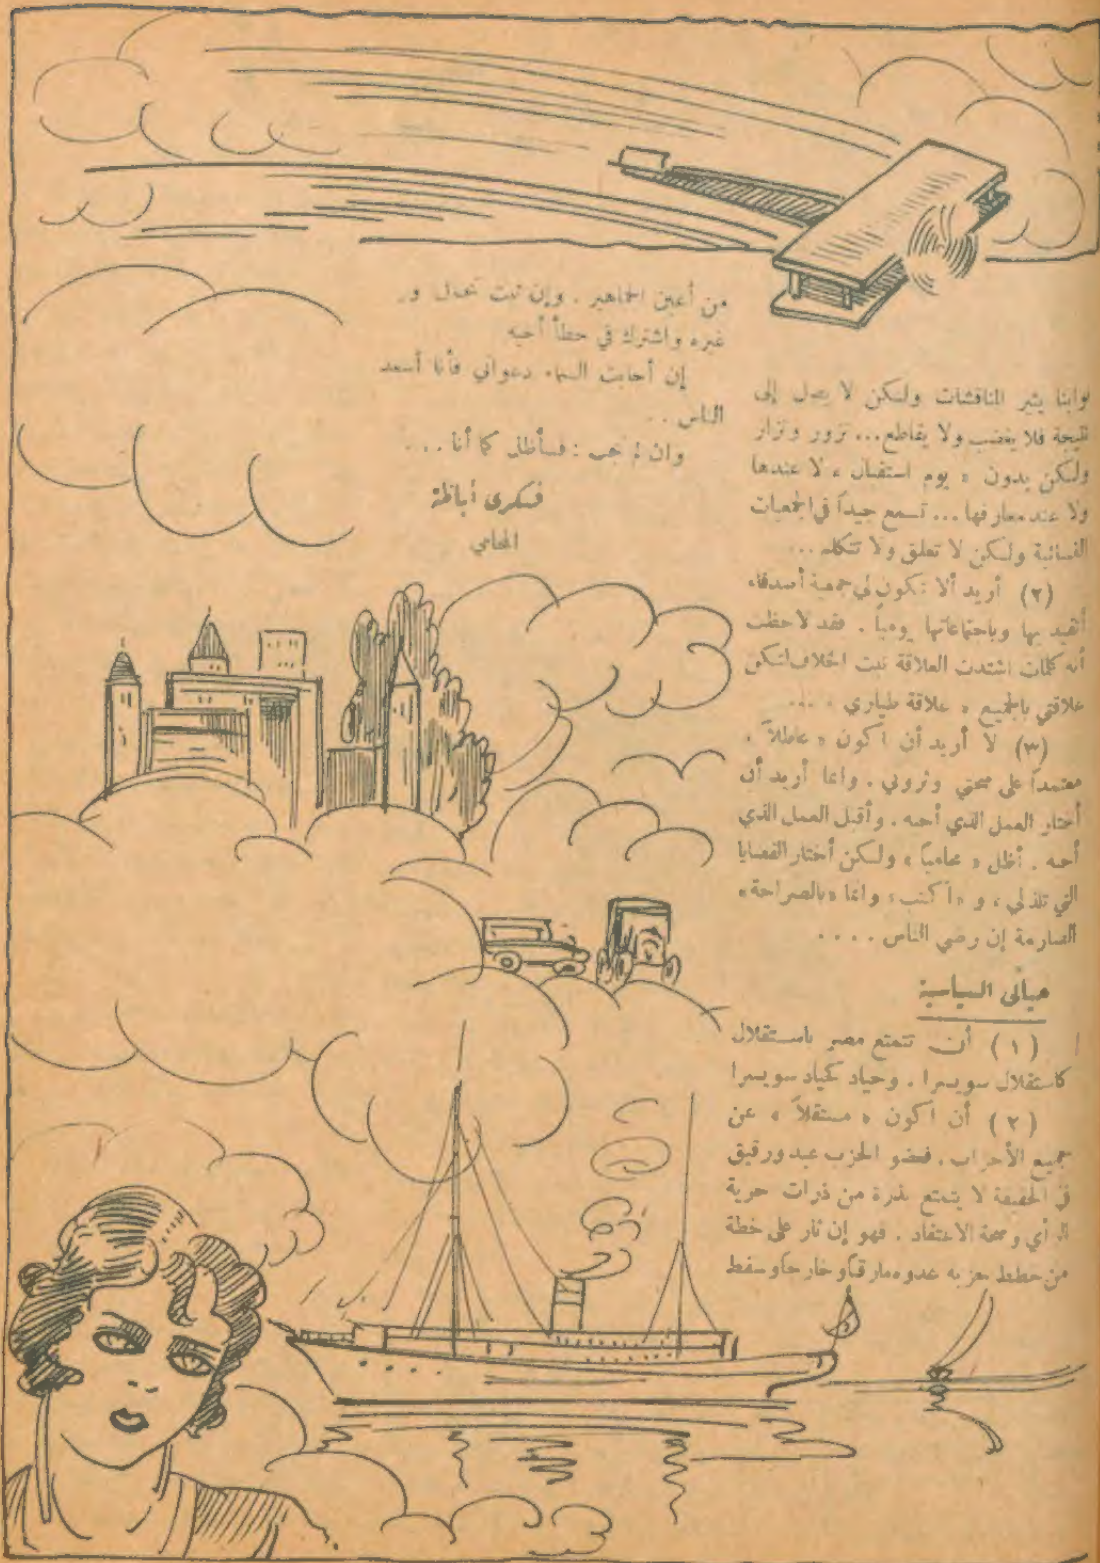 نوابنا يثير المناقشات ولكن لا يصل إلى
نتيجة فلا يغضب ولا يقاطع... تزور وتزار
ولكن بدون « يوم استقبال » لا عندها
ولا عند معارفها... تسمع جيداً في الجمعيات
النسائية ولكن لا تعلق ولا تتكلم...
(٢) أريد ألا تكون لي جمعية أصدقاء
أتقيد بها وباجتماعاتها يومياً . فقد لاحظت
أنه كلمات اشتدت العلاقة نبت الخلاف لتكن
علاقتي بالجميع « علاقة طياري » ...
(٣) لا أريد أن اكون « عاطلاً »
معتمداً على صحتي وثروتي . وانما أريد أن
أختار العمل الذي أحبه . وأقبل العمل الذي
أحبه . أظل « محامياً » ولكن أختار القضايا
التي تلذ لي ، و « أكتب » وانما « بالصراحة »
الصارمة إن رضي الناس ....
حياتى السياسية
(١) أن تتمتع مصر باستقلال
كاستقلال سويسرا . وحياد كحياد سويسرا
(٢) أن اكون « مستقلاً » عن
جميع الأحزاب . فعضو الحزب عبد ورقيق
في الحقيقة لا يتمتع بذرة من ذرات حرية
الرأي وصحة الاعتقاد . فهو إن ثار على خطة
من خطط حزبه عدوه مارقاً وخارجاً وسقط
من أعين الجماهير . وإن ثبت تحمل وزر
غيره واشترك في خطأ أخيه
إن أجابت السماء دعواتي فأنا أسعد
الناس ..
وان لم تجب : فسأظل كما أنا ...
فكرى أباظة
المحامي